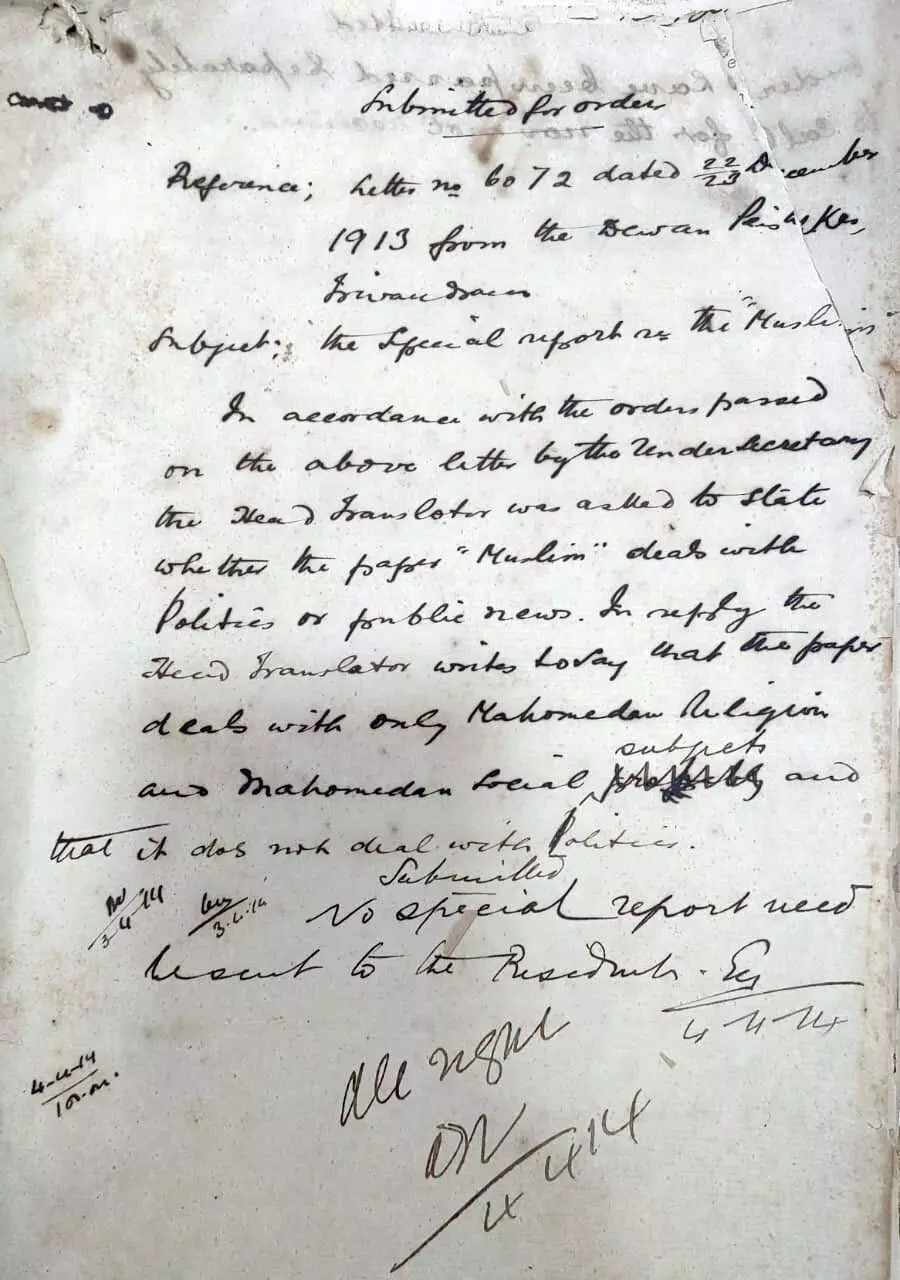 Submitted for order
Reference; Letter no 6072 dated 22/23 December
1913 from the Dewan Peishkar,
Trivandrum
Subject; the Special report re the "Muslim
In accordance with the orders passed
on the above letter by the Under Secretary
the Head Translator was asked to state
whether the paper "Muslim" deals with
Politics or public news. In reply the
Head Translator writes today that the paper
deals with only Mahomedan Religion
subjects
and Mahomedan Social and
that it does not deal with Politics.
Submitted
3-4-14
3-4-14
No special report need
be sent to the Resident.
4-4-14
4-4-14
All right
4 4 14